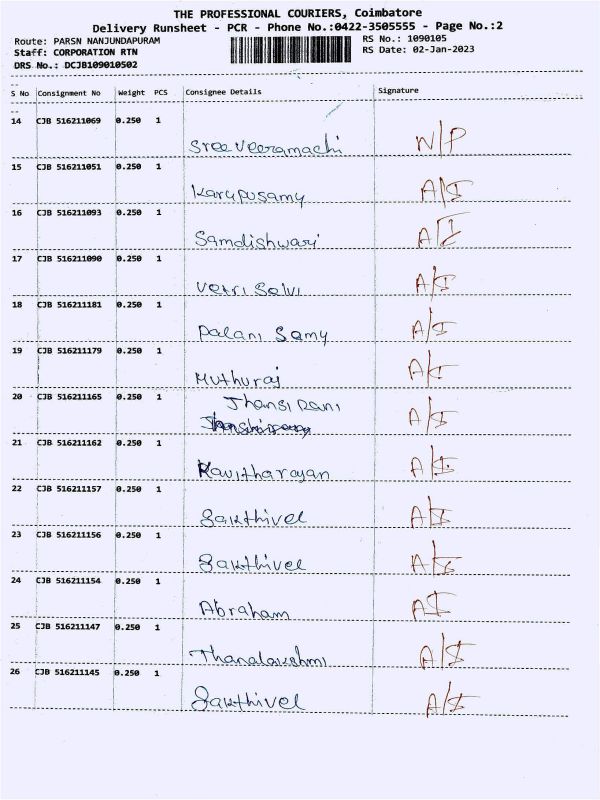 THE PROFESSIONAL COURIERS, Coimbatore
Delivery Runsheet - PCR - Phone No.:0422-3505555 - Page No.:2
Route: PARSN NANJUNDAPURAM
RS No.: 1090105
Staff: CORPORATION RTN
RS Date: 02-Jan-2023
DRS No.: DCJB109010502
S No Consignment No Weight PCS Consignee Details Signature
14 CJB 516211069 0.250 1
Sree Veeramachi N/P
15 CJB 516211051 0.250 1
Karuppusamy A/I
16 CJB 516211093 0.250 1
Samdishwari A/I
17 CJB 516211090 0.250 1
Vetri Selvi A/I
18 CJB 516211181 0.250 1
Palani Samy A/I
19 CJB 516211179 0.250 1
Muthuraj A/I
20 CJB 516211165 0.250 1
Jhansi Rani A/I
21 CJB 516211162 0.250 1
Kavitharayan A/I
22 CJB 516211157 0.250 1
Sakthivel A/I
23 CJB 516211156 0.250 1
Sakthivel A/I
24 CJB 516211154 0.250 1
Abraham A/I
25 CJB 516211147 0.250 1
Thanalakshmi A/I
26 CJB 516211145 0.250 1
Sakthivel A/I